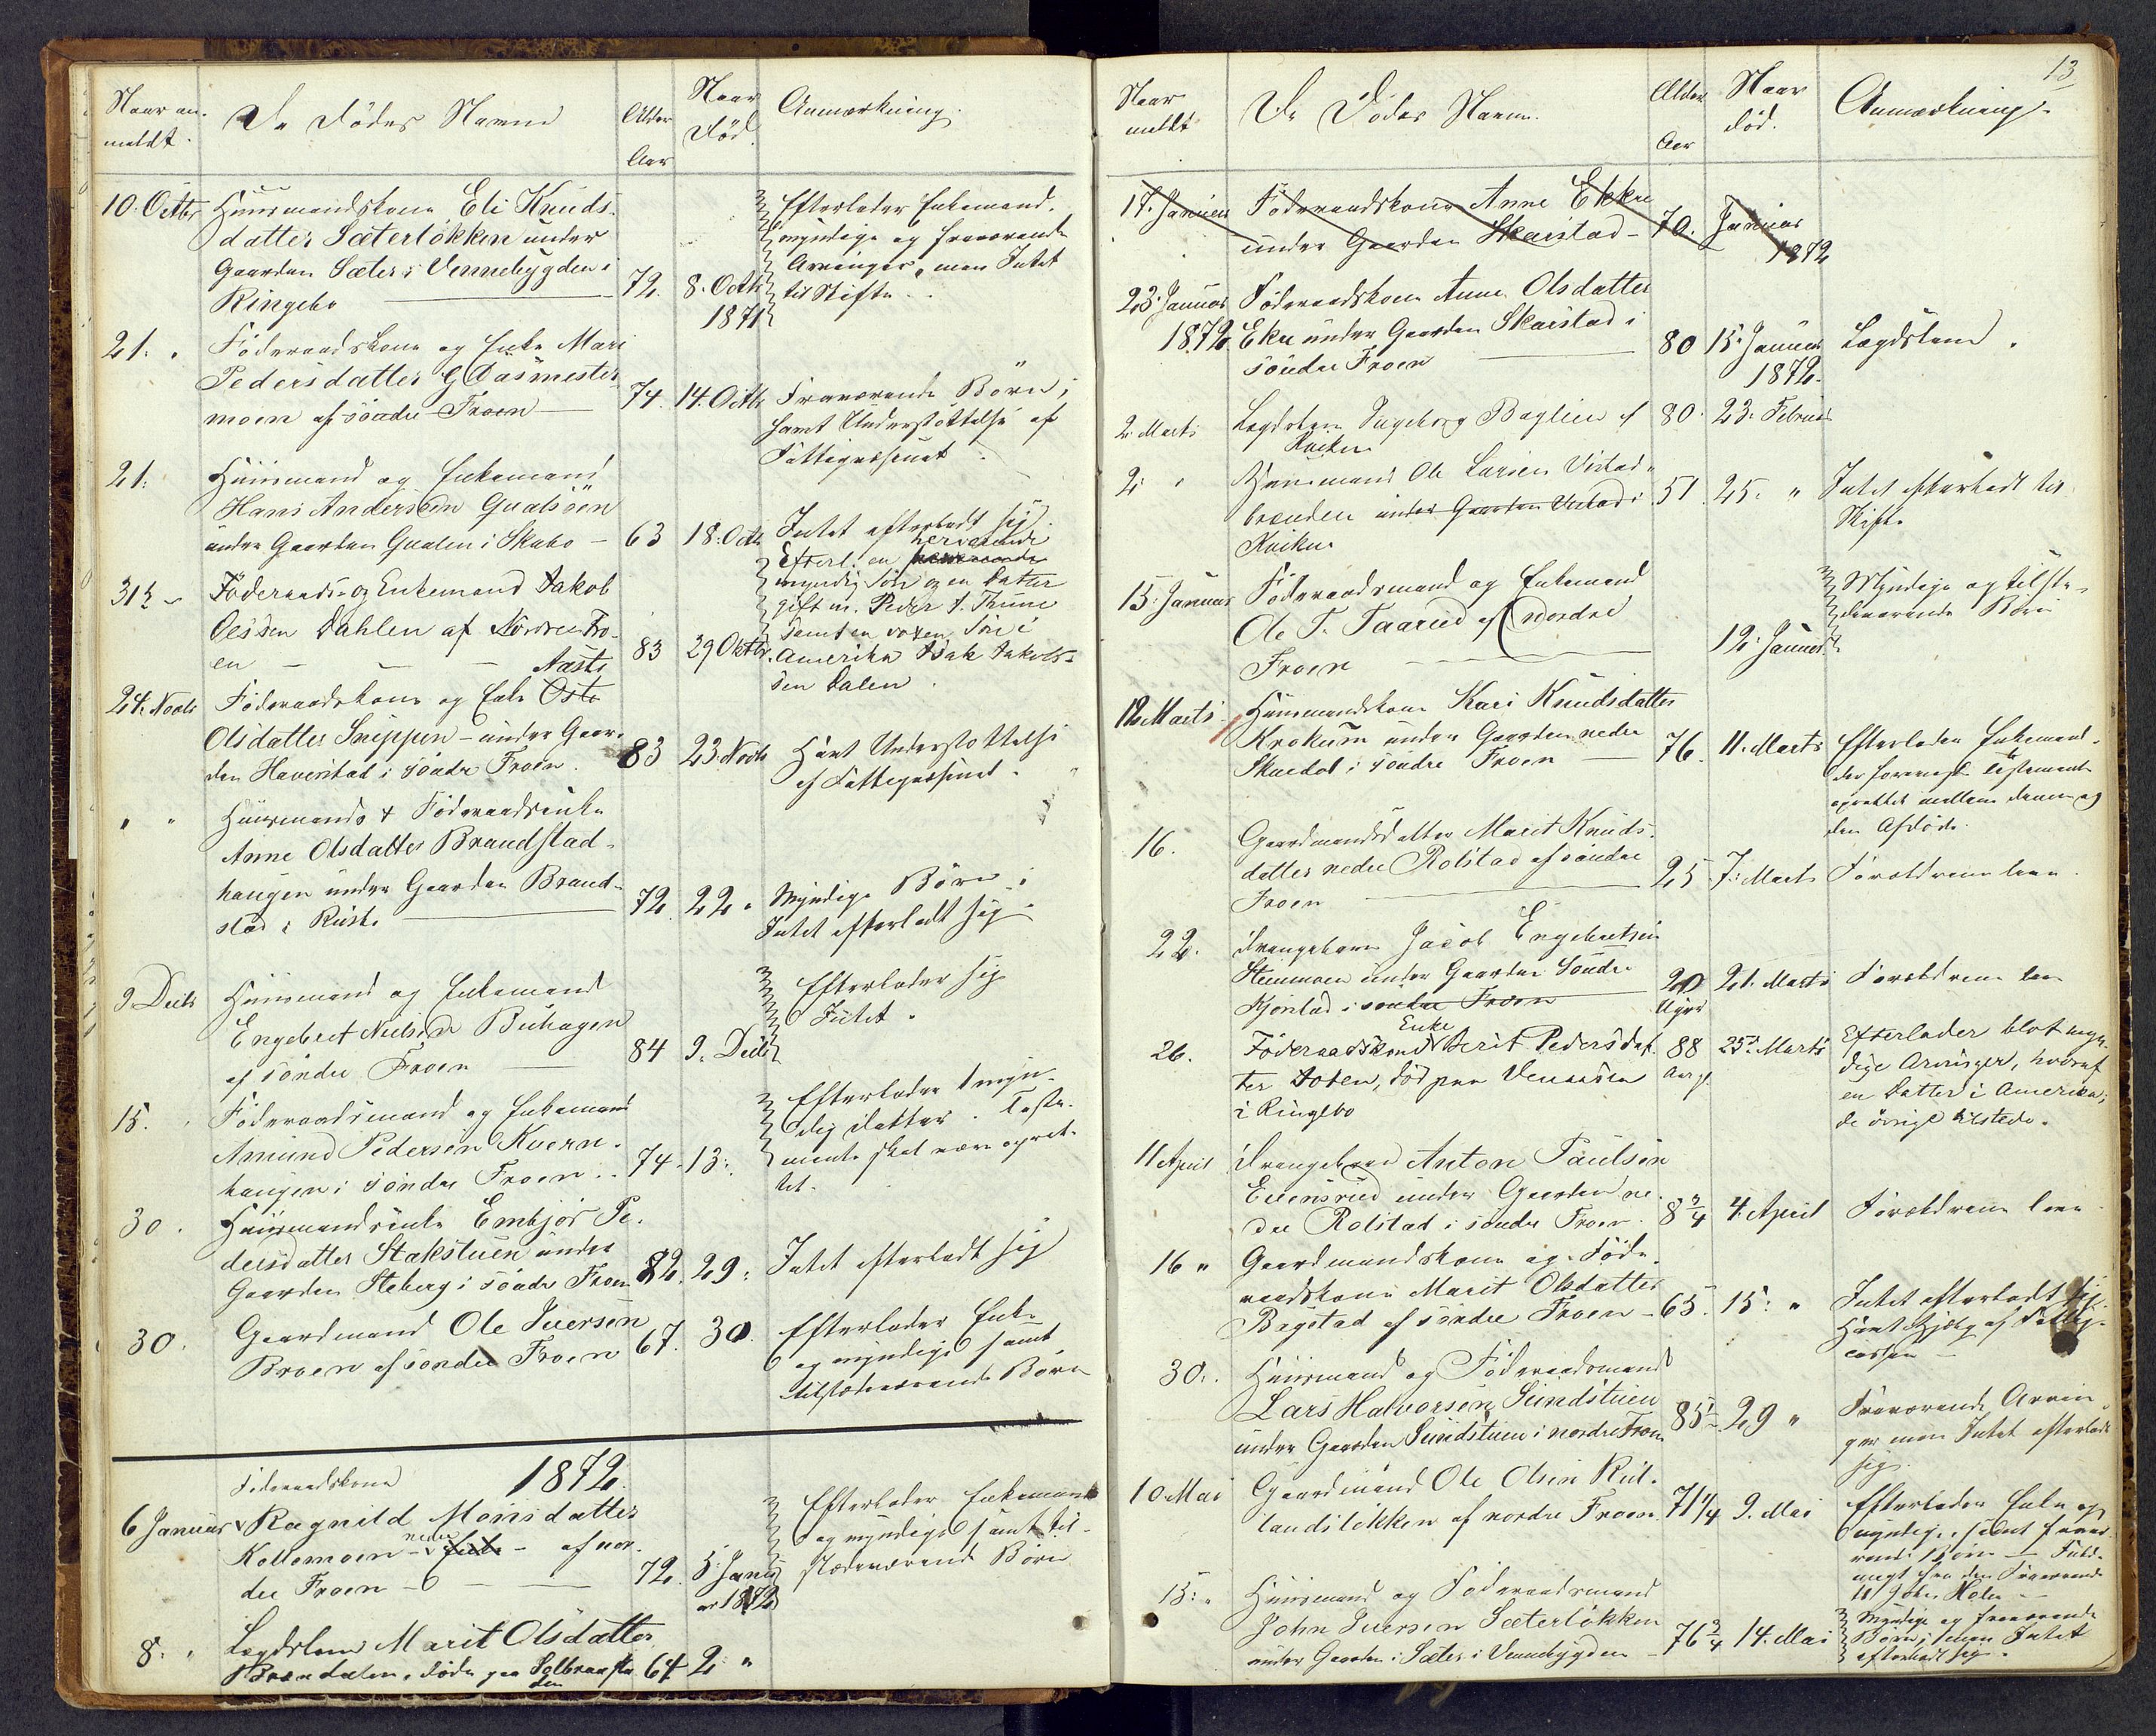 Naar an-
meldt.
De Dödes Navne
Alder
Aar
Naar
Död.
Anmærkning.
10. Octbr
Huusmandskone Eli Knuds-
datter Sæterløkken under
Gaarden Sæter i Vennebygden i
Ringebo
72.
8. Octb.
1871
Efterlader Enkemand,
myndige og fraværende
Arvinger, men Intet
til Skifte.
21. "
Föderaadskone og Enke Mari
Pedersdatter
moen af söndre Froen
74.
14. Octb.
Fraværende Börn;
havt Understöttelse af
Fattigvæsenet.
21.
Huusmand og Enkemand
Hans Andersen Gualssön
under Gaarden Gualen i Skabo
63
18. Octb.
Intet efterladt sig.
31te
Föderaads- og Enkemand Jakob
Olssen Dahlen af Nordre Fro-
en
83
29 Oktbr.
Efterl. en herværende
myndig Sön og en Datter
gift m. Peder J. Thune
samt en voxen Sön i
Amerika Isak Jakobs-
sen Dalen.
24. Novb.
Föderaadskone og Enke Aaste
Olsdatter Snippen - under Gaar-
den Haverstad i söndre Froen.
83
23. Novb.
Havt Understöttelse
af Fattigvæsenet.
" "
Huusmands & Föderaadsenke
Anne Olsdatter Brandstad-
haugen under Gaarden Brand-
stad i Ruste
72.
22. "
Myndige Börn;
Intet efterladt sig.
9 Decb.
Huusmand og Enkemand
Engebret Nielsen Buhagen
af söndre Froen
84
9. Decb.
Efterlader sig
Intet.
15. "
Föderaadsmand og Enkemand
Amund Pedersen Kvern-
haugen i söndre Froen..
74.
13.
Efterlader 1 myn-
dig Datter. Testa-
mente skal være opret-
tet.
30.
Huusmandsenke Embjör Pe-
dersdatter Stakstuen under
Gaarden Steberg i söndre Froen
82.
29.
Intet efterladt sig
30.
Gaardmand Ole Iversen
Broen af söndre Froen
67.
30.
Efterlader Enke
og myndige samt
tilstedeværende Börn
1872.
6 Januar
Föderaadskone
Ragnild Monsdatter
Kollemoen nedre - af nor-
dre Froen
72.
5. Janu
ar 1872
Efterlader Enkemand
og myndige samt til-
stedeværende Börn
8. "
Lægdslem Marit Olsdatter
Brændalen, döde paa
64
2 "
13
Naar
meldt
De Dödes Navne.
Alder
Aar
Naar
död.
Anmærkning.
17. Januar
Föderaadskone Anne Ekre
under Gaarden Skarstad -
70.
Januar
1872
23. Januar
1872.
Föderaadskone Anne Olsdatter
Ekre under Gaarden Skarstad i
söndre Froen
80
15. Januar
1872.
Lægdslem.
2 Marts
Lægdslem Ingeborg Baglien af
Kvikne
80.
23. Februar
2. "
Huusmand Ole Larsen Vistad-
brenden under Gaarden Vistad i
Kvikne
51.
25. "
Intet efterladt til
Skifte
15. Januar
Föderaadsmand og Enkemand
Ole T. Taarud af nordre
Froen
12. Januar
Myndige og tilste-
deværende Börn
12. Marts
Huusmandskone Kari Knudsdatter
Krokum under Gaarden nedre
Skurdal i söndre Froen
76.
11. Marts
Efterlader Enkemand,
Testament
oprettet mellem denne og
den Afdöde.
16.
Gaardmandsdatter Marit Knuds-
datter nedre Rolstad af söndre
Froen
25.
7. Marts
Forældrene leve.
22.
Drengebarn Jacob Engebretsen
Steinmoen under Gaarden Söndre
Kjonstad i söndre Froen
20
Uger
21. Marts
Forældrene leve
26.
Föderaadskone Enke Berit Pedersdat-
ter Joten, död paa Venaasen
i Ringebo
88
Aar gl.
25de Marts
Efterlader blot myn-
dige Arvinger, hvoraf
en Datter i Amerika;
de övrige tilstede.
11 April
Drengebarn Anton Paulsen
Evensrud under Gaarden ne-
dre Rolstad i söndre Froen.
8 3/4
4. April
Forældrene leve.
16 "
Gaardmandskone og Föde-
raadskone Marit Olsdatter
Bagstad af söndre Froen -
65.
15. "
Intet efterladt sig.
Havt Hjelp af Fattig-
cassen -
30..
Huusmand og Föderaadsmand
Lars Halvorsen Sundstuen
under Gaarden Sundstuen i nordre Froen
85
29 "
Fraværende Arvin-
ger men Intet efterladt
sig.
10 Mai
Gaardmand Ole Olsen Rut-
landslökken af nordre Froen.
71 1/4
9. Mai
Efterlader Enke og
myndige, samt fravæ-
rende Börn - Fuld-
magt fra den Fraværende
til John Holen -
15. "
Huusmand og Föderaadsmand
John Iversen Sæterlökken
under Gaarden Sæter i Vennebygden
76 3/4
14. Mai
Myndige og fraværende
Börn; men Intet
efterladt sig.